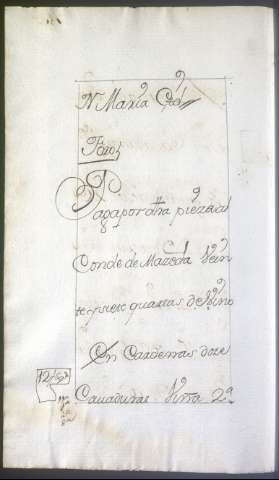 N. Maria
Foro
Paga por dha pieza al
Conde de Mazeda Vein
te y siete quartas de Vino
En Cardenas doze
Cauaduras Viña 2ª
12